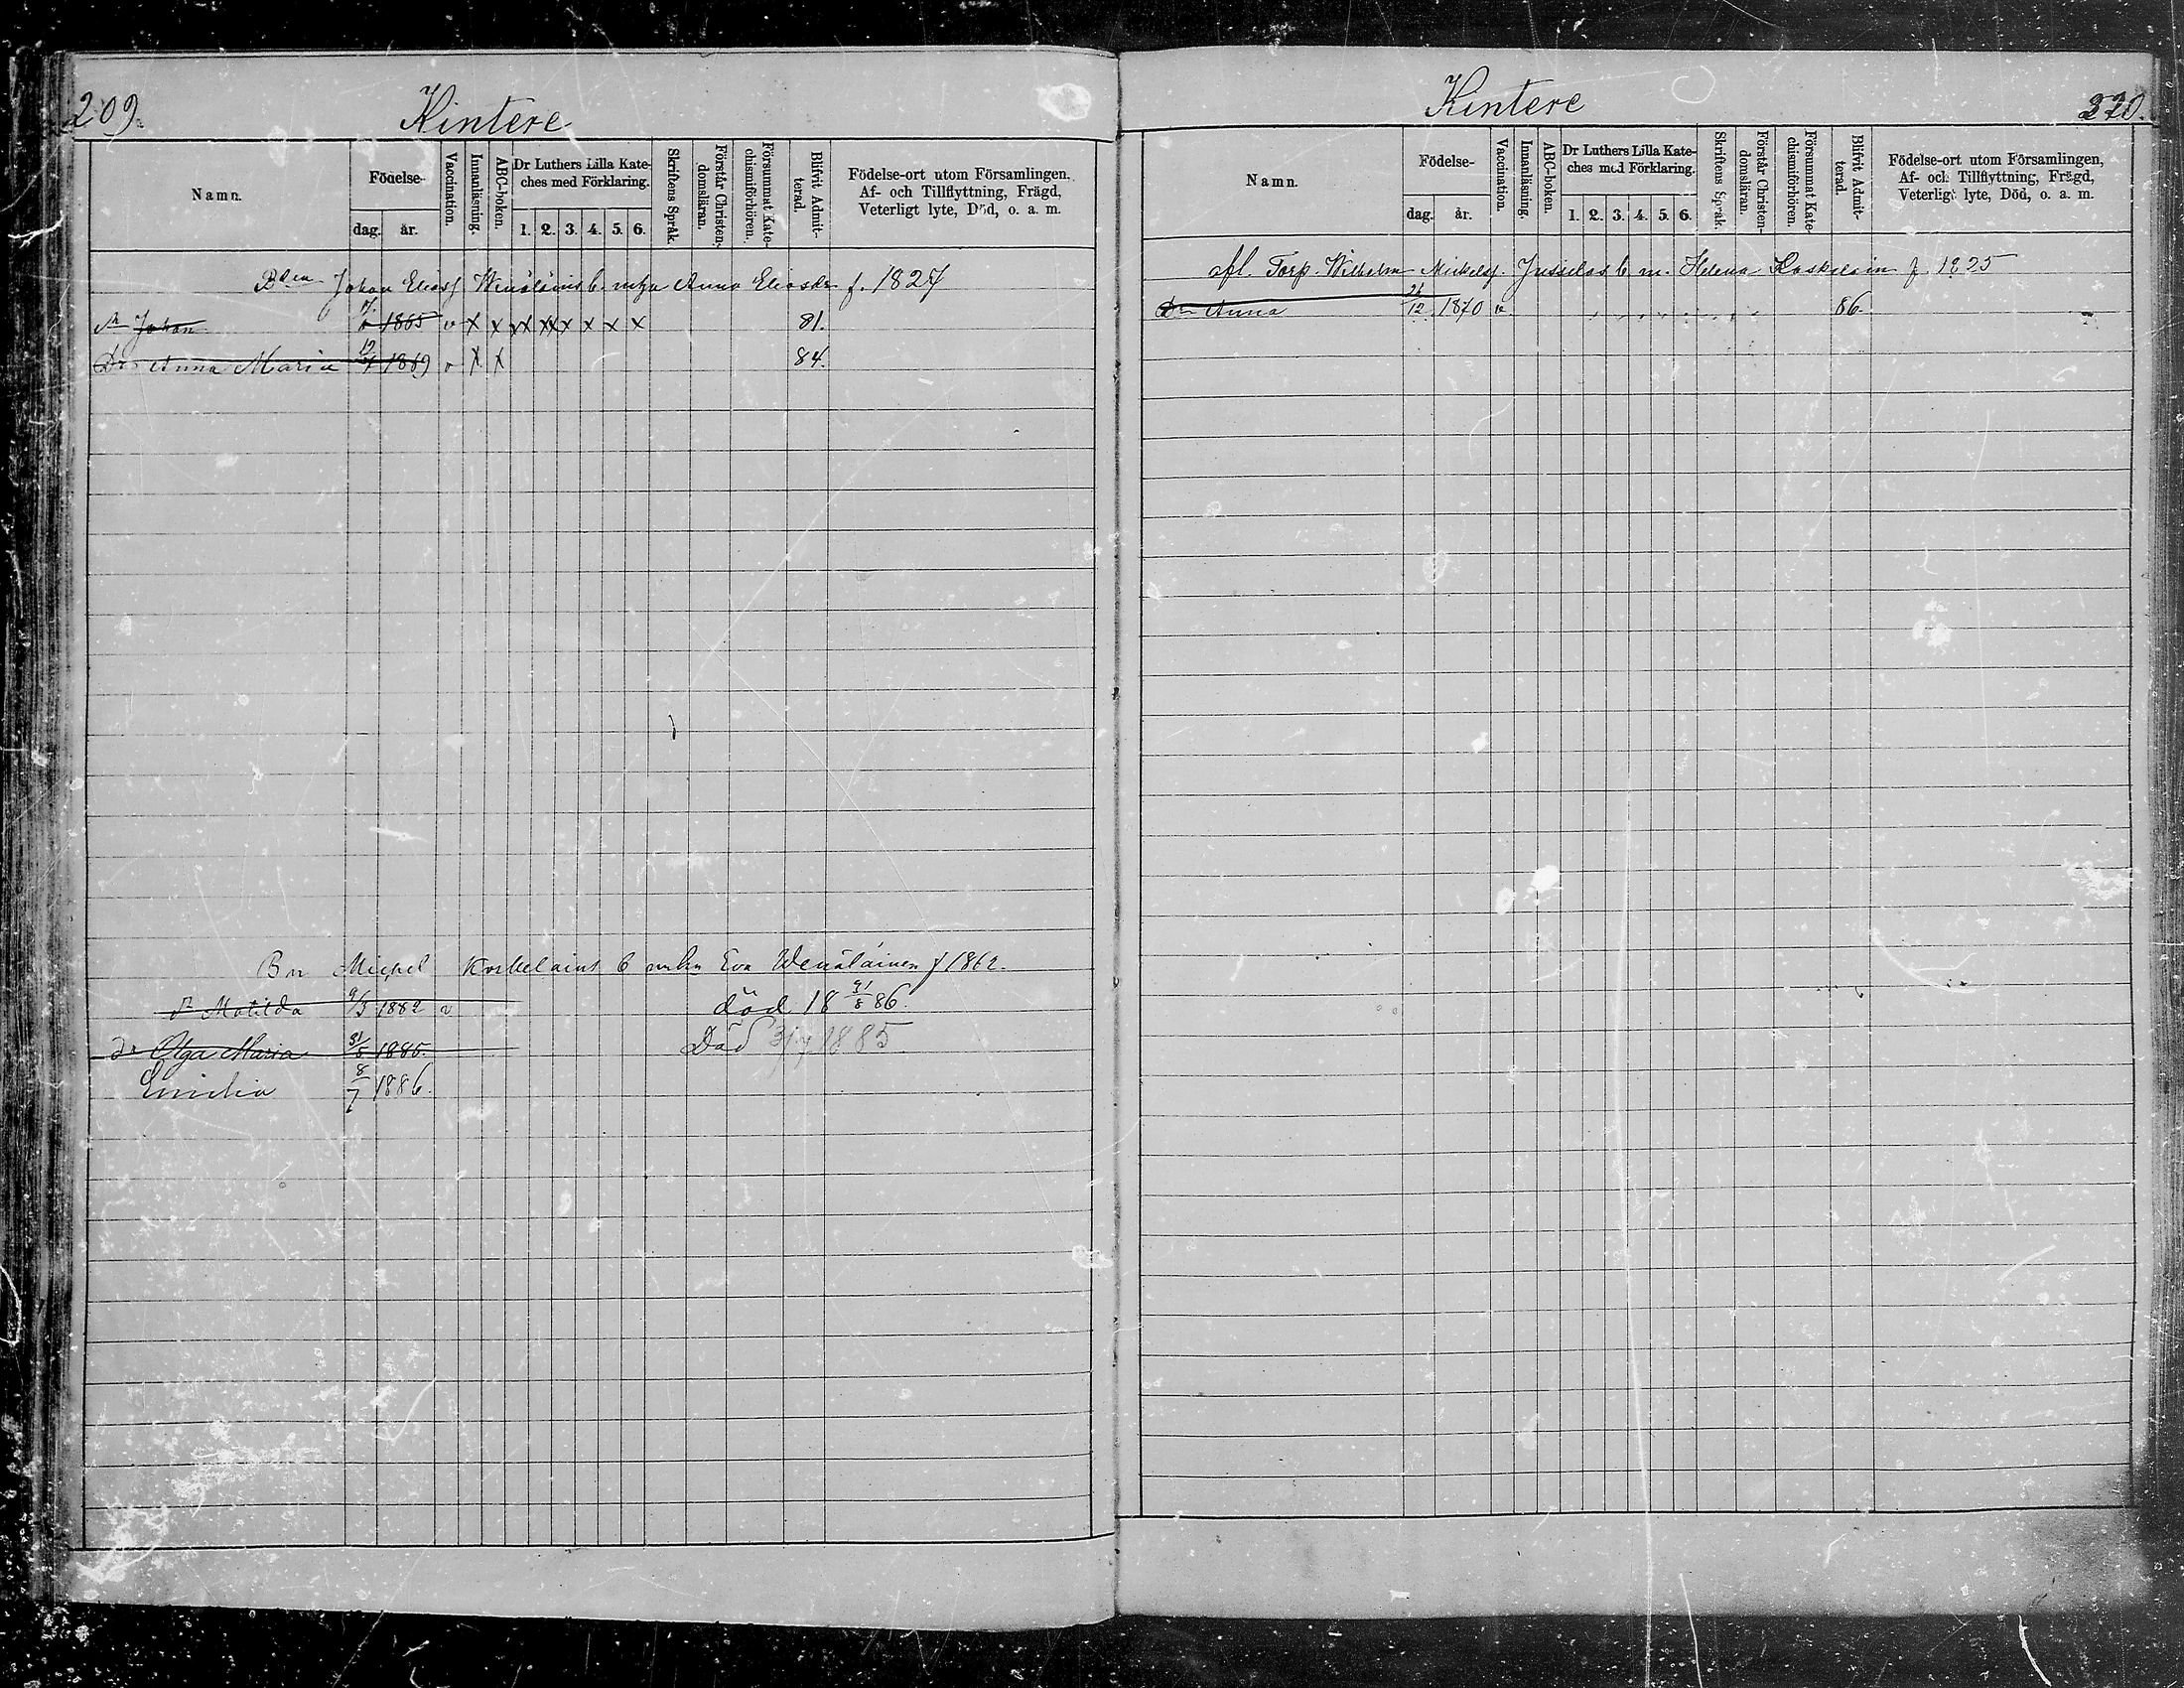 209.
Kintere
Namn. Födelse- dag. år. Vaccination. Innanläsning. ABC-boken. Dr Luthers Lilla Kateches med Förklaring. 1. 2. 3. 4. 5. 6. Skriftens Språk. Förstår Christendomsläran. Försummat Katechismiförhören. Blifvit Admitterad. Födelse-ort utom Församlingen, Af- och Tillflyttning, Frägd, Veterligt lyte, Död, o. a. m.
Bden Johan Eliass Winäläins b. Anna Eliasdr f. 1827
Johan 1865 v x x x x x x x x 81.
Dr Anna Maria 1869 v x x 84.
Bn Michel Koskelains b Eva Wenäläinen f 1862.
Matilda 9/3 1882 v död 18 31/8 86.
dr Olga Maria 31/5 1885. Död 3/7 1885
Emilia 8/7 1886.
Kintere
Namn. Födelse- dag. år. Vaccination. Innanläsning. ABC-boken. Dr Luthers Lilla Kateches med Förklaring. 1. 2. 3. 4. 5. 6. Skriftens Språk. Förstår Christendomsläran. Försummat Katechismiförhören. Blifvit Admitterad. Födelse-ort utom Församlingen, Af- och Tillflyttning, Frägd, Veterligt lyte, Död, o. a. m.
afl. Torp. Wilhelm Mickelss. Jussilas b m. Helena Koskelain f. 1825
Dr Anna 26/12 1870 v 86.